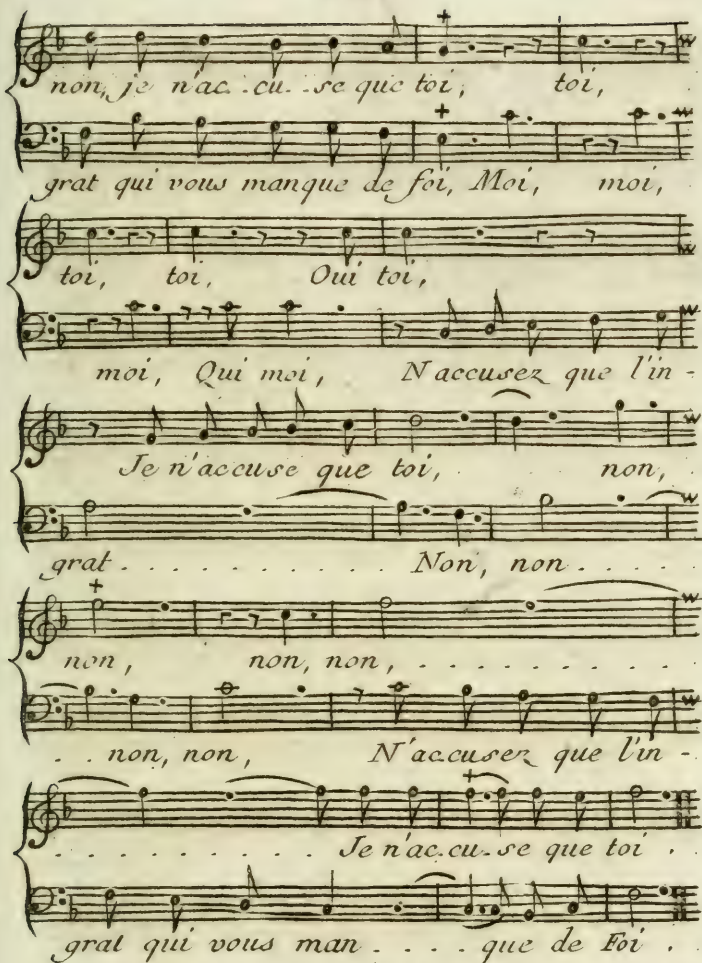 non, je n'ac. cu. se que toi, toi,
grat qui vous manque de foi, Moi, moi,
toi, toi, Oui toi,
moi, Qui moi, N'accusez que l'in-
Je n'accuse que toi, non,
grat . . . . . . . . . . . Non, non . . . .
non, non, non, . . . . . . . . . .
. . non, non, N'accusez que l'in-
. . . . . . . . . Je n'ac. cu. se que toi .
grat qui vous man . . . . que de Foi .